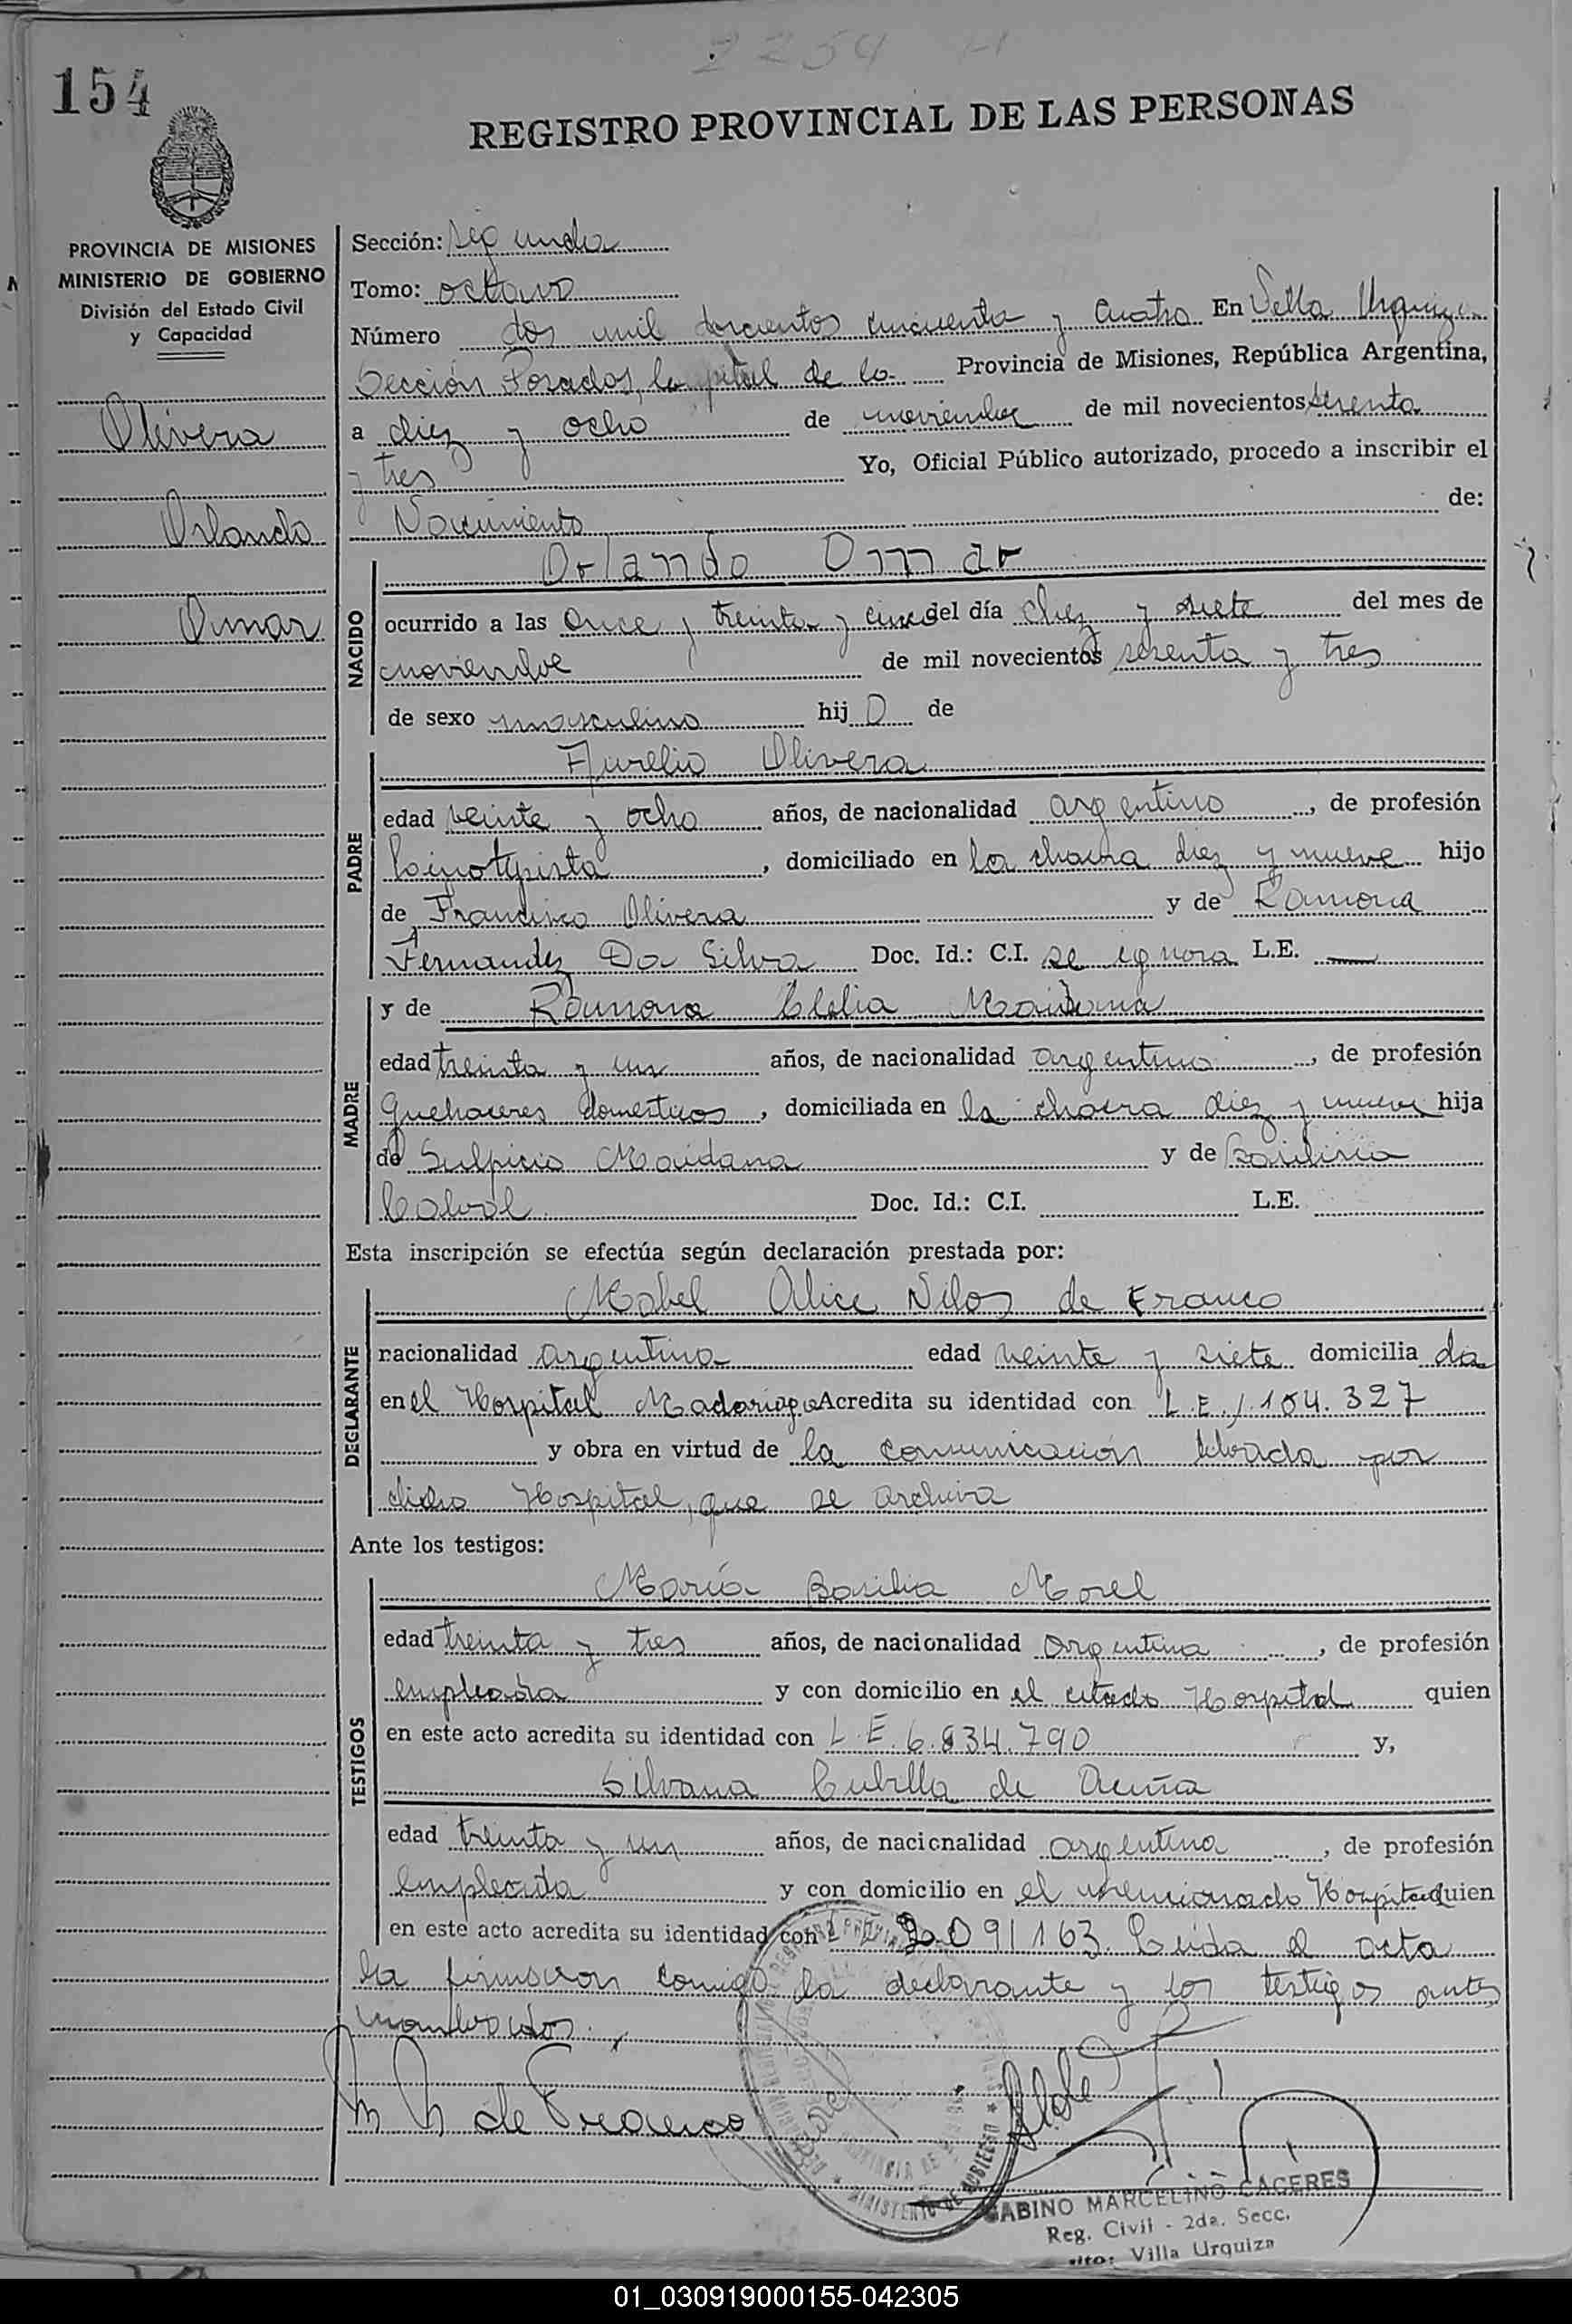 2254 H
154
REGISTRO PROVINCIAL DE LAS PERSONAS
PROVINCIA DE MISIONES
MINISTERIO DE GOBIERNO
División del Estado Civil
y Capacidad
Olivera
Orlando
Omar
Sección: segunda
Tomo: octavo
Número dos mil doscientos cincuenta y cuatro En Villa Urquiza
Sección Posadas, capital de la Provincia de Misiones, República Argentina,
a diez y ocho de noviembre de mil novecientos sesenta
y tres Yo, Oficial Público autorizado, procedo a inscribir el
Nacimiento de:
NACIDO
Orlando Omar
ocurrido a las once y treinta y cinco del día diez y siete del mes de
noviembre de mil novecientos sesenta y tres
de sexo masculino hijo de
PADRE
Aurelio Olivera
edad veinte y ocho años, de nacionalidad argentino, de profesión
Linotipista, domiciliado en la chacra diez y nueve hijo
de Francisco Olivera y de Ramona
Fernandez Da Silva Doc. Id.: C.I. se ignora L.E. —
MADRE
y de Ramona Clelia Maidana
edad treinta y un años, de nacionalidad argentina, de profesión
Quehaceres domesticos, domiciliada en la chacra diez y nueve hija
de Sulpicio Maidana y de Basilicia
Cabral Doc. Id.: C.I. L.E.
Esta inscripción se efectúa según declaración prestada por:
DECLARANTE
Mabel Alice Nilos de Franco
nacionalidad argentina edad veinte y siete domicilia da
en el Hospital Madariaga Acredita su identidad con L.E. 1.104.327
y obra en virtud de la comunicación librada por
dicho Hospital, que se archiva
Ante los testigos:
TESTIGOS
María Basilia Morel
edad treinta y tres años, de nacionalidad argentina, de profesión
empleada y con domicilio en el citado Hospital quien
en este acto acredita su identidad con L.E. 6.834.790 y,
Silvana Cubilla de Acuña
edad treinta y un años, de nacionalidad argentina, de profesión
empleada y con domicilio en el mencionado Hospital quien
en este acto acredita su identidad con 2.091163. Leida el acta
la firmaron comigo la declarante y los testigos antes
nombrados.
M N de Franco
GABINO MARCELINO CACERES
Reg. Civil - 2da. Secc.
Villa Urquiza
01_030919000155-042305